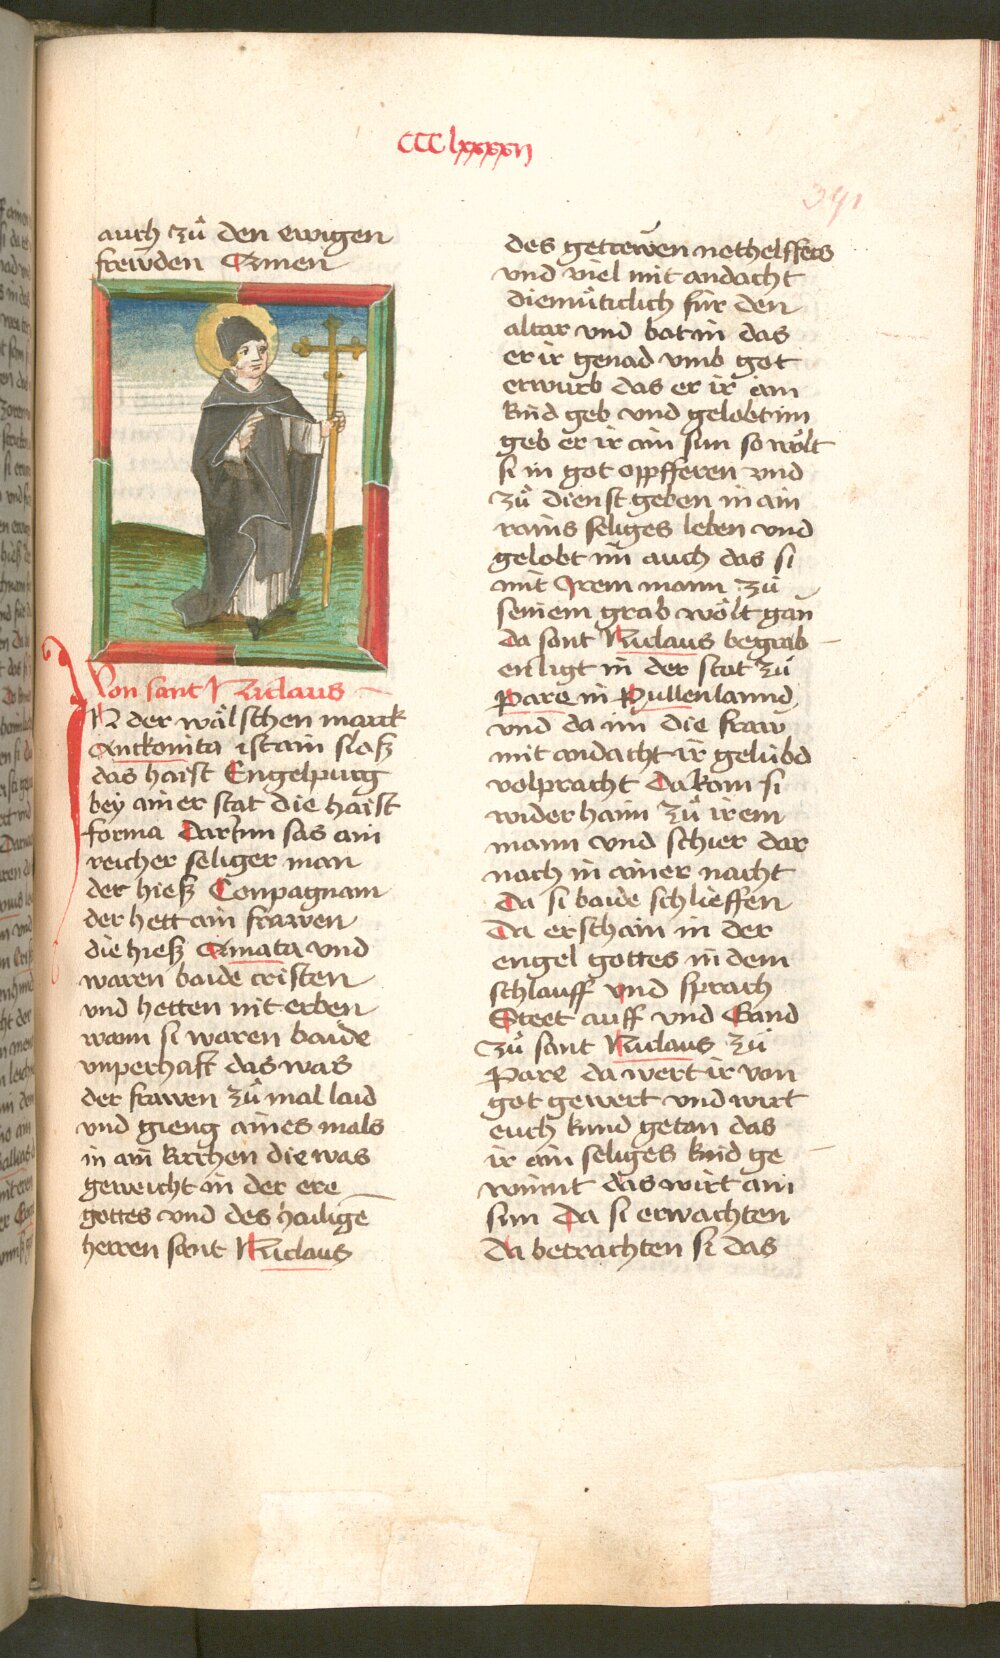 CCClxxxxij
391
auch zů den ewigen
frewden Amen
Von sant Niclaus
IN der wälschen marck
Anckonita ist ain sloß
das haist Engelpurg
bey ainer stat die haist
forma Darinn sas ain
reicher seliger man
der hieß Conpagnam
der hett ain frawen
die hieß Amata vnd
waren baide cristen
vnd hetten nit erben
wann si waren baide
vnperhaft das was
der frawen zů mal laid
vnd gieng aines mals
in ain kirchen die was
geweicht in der ere
gottes vnd des hailigē
herren sant Niclaus
des getrewen nothelffers
vnd viel mit andacht
diemůticlich für den
altar vnd bat in das
er ir genad vmb got
erwurb das er ir ain
kind geb vnd gelobt im
geb er ir ain sun so wolt
si in got oppfferen vnd
zů dienst geben in ain
rains seliges leben vnd
gelobt im auch das si
mit Irem mann zů
seinem grab wölt gan
da sant Niclaus begrab
en ligt in der stat zů
Pare in Pullenlannd
vnd da im die fraw
mit andacht ir gelübd
volpracht Da kam si
wider haim zů irem
mann vnd schier dar
nach in ainer nacht
Da si baide schlieffen
Da erschain in der
engel gottes in dem
schlauff vnd sprach
Steet auff vnd Gand
zů sant Niclaus zů
Pare da wert ir von
got gewert vnd wirt
euch kund getan das
ir ain seliges kind ge
winnt das wirt ain
sun Da si erwachten
Da betrachten si das